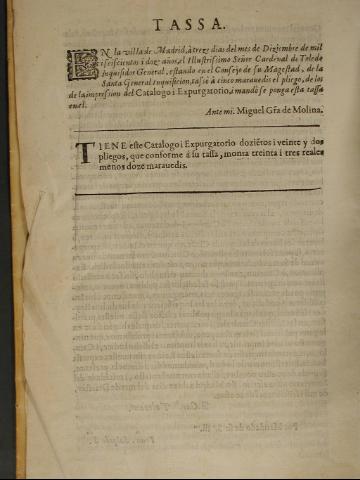 TASSA.
EN la villa de Madrid, à trez dias del mes de Diziembre de mil
i seiscientos i doze años, el Illustrissimo Señor Cardenal de Toledo
Inquisidor General, estando en el Consejo de su Magestad, de la
Santa General Inquisicion, tassò à cinco maravedis el pliego, de los
de la impression del Catalogo i Expurgatorio, i mandò se ponga esta tassa
en el.
Ante mi. Miguel Gr̃a de Molina.
TIENE este Catalogo i Expurgatorio doziẽtos i veinte y dos
pliegos, que conforme á su tassa, monta treinta i tres reales
menos doze maravedis.